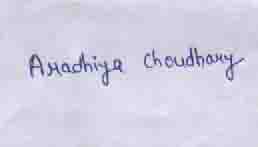 Aradhiya Choudhary